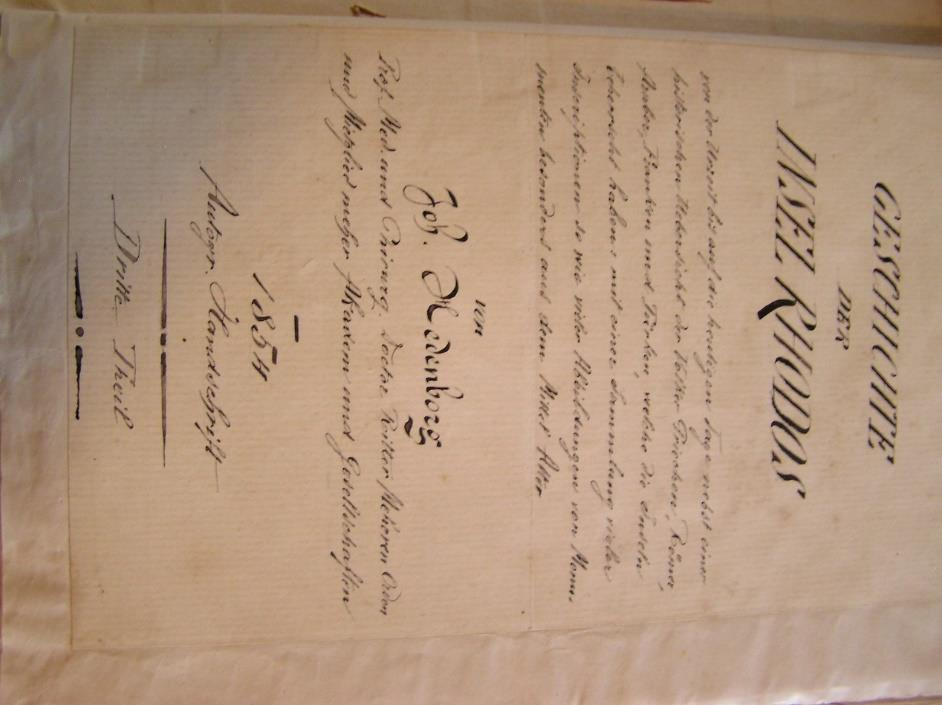 GESCHICHTE
DER
INSEL RHODOS
von der Urzeit bis auf die heutigen Tage nebst einer
historischen Uebersicht der Völker Griechen, Römer,
Araber, Franken und Türken, welche die Inseln
beherrscht haben mit einer Sammlung vieler
Inscriptionen so wie vieler Abbildungen von Monu,
menten besonders aus dem Mittel Alter
von
Joh. Hedenborg
Prof. Med. und Chirurg. Doctor Ritter Mehreren Orden
und Mitglied mehrer Akadem und Gesellschaften
1854
Autogr. Handschrift
Dritte Theil